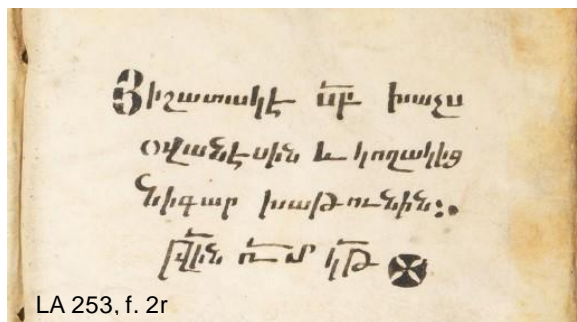 Յիշատակէ սբ խաչս
օվանէսին և կողակից
նիգար խաթունին:.
թվին կթ
LA 253, f. 2r